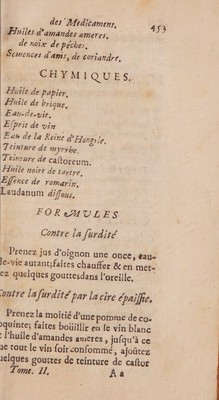 des Medicamens. 453
Huiles d'amandes ameres.
de noix de pêches.
Semences d'anis, de coriandre.
CHYMIQUES,
Huile de papier.
Huile de brique.
Eau-de-vie.
Esprit de vin
Eau de la Reine d'Hongrie.
Teinture de myrrhe.
Teinture de castoreum.
Huile noire de tartre.
Essence de romarin.
Laudanum dissous.
FORMULES
Contre la surdité
Prenez jus d'oignon une once, eau-
de-vie autant; faites chauffer & en met-
ez quelques gouttes dans l'oreille.
Contre la surdité par la cire épaissie.
Prenez la moitié d'une pomme de co-
oquinte; faites boüillir en le vin blanc
l'huile d'amandes ameres, jusqu'à ce
ue tout le vin soit consommé, ajoûtez
uelques gouttes de teinture de castor
Tome. II. A a